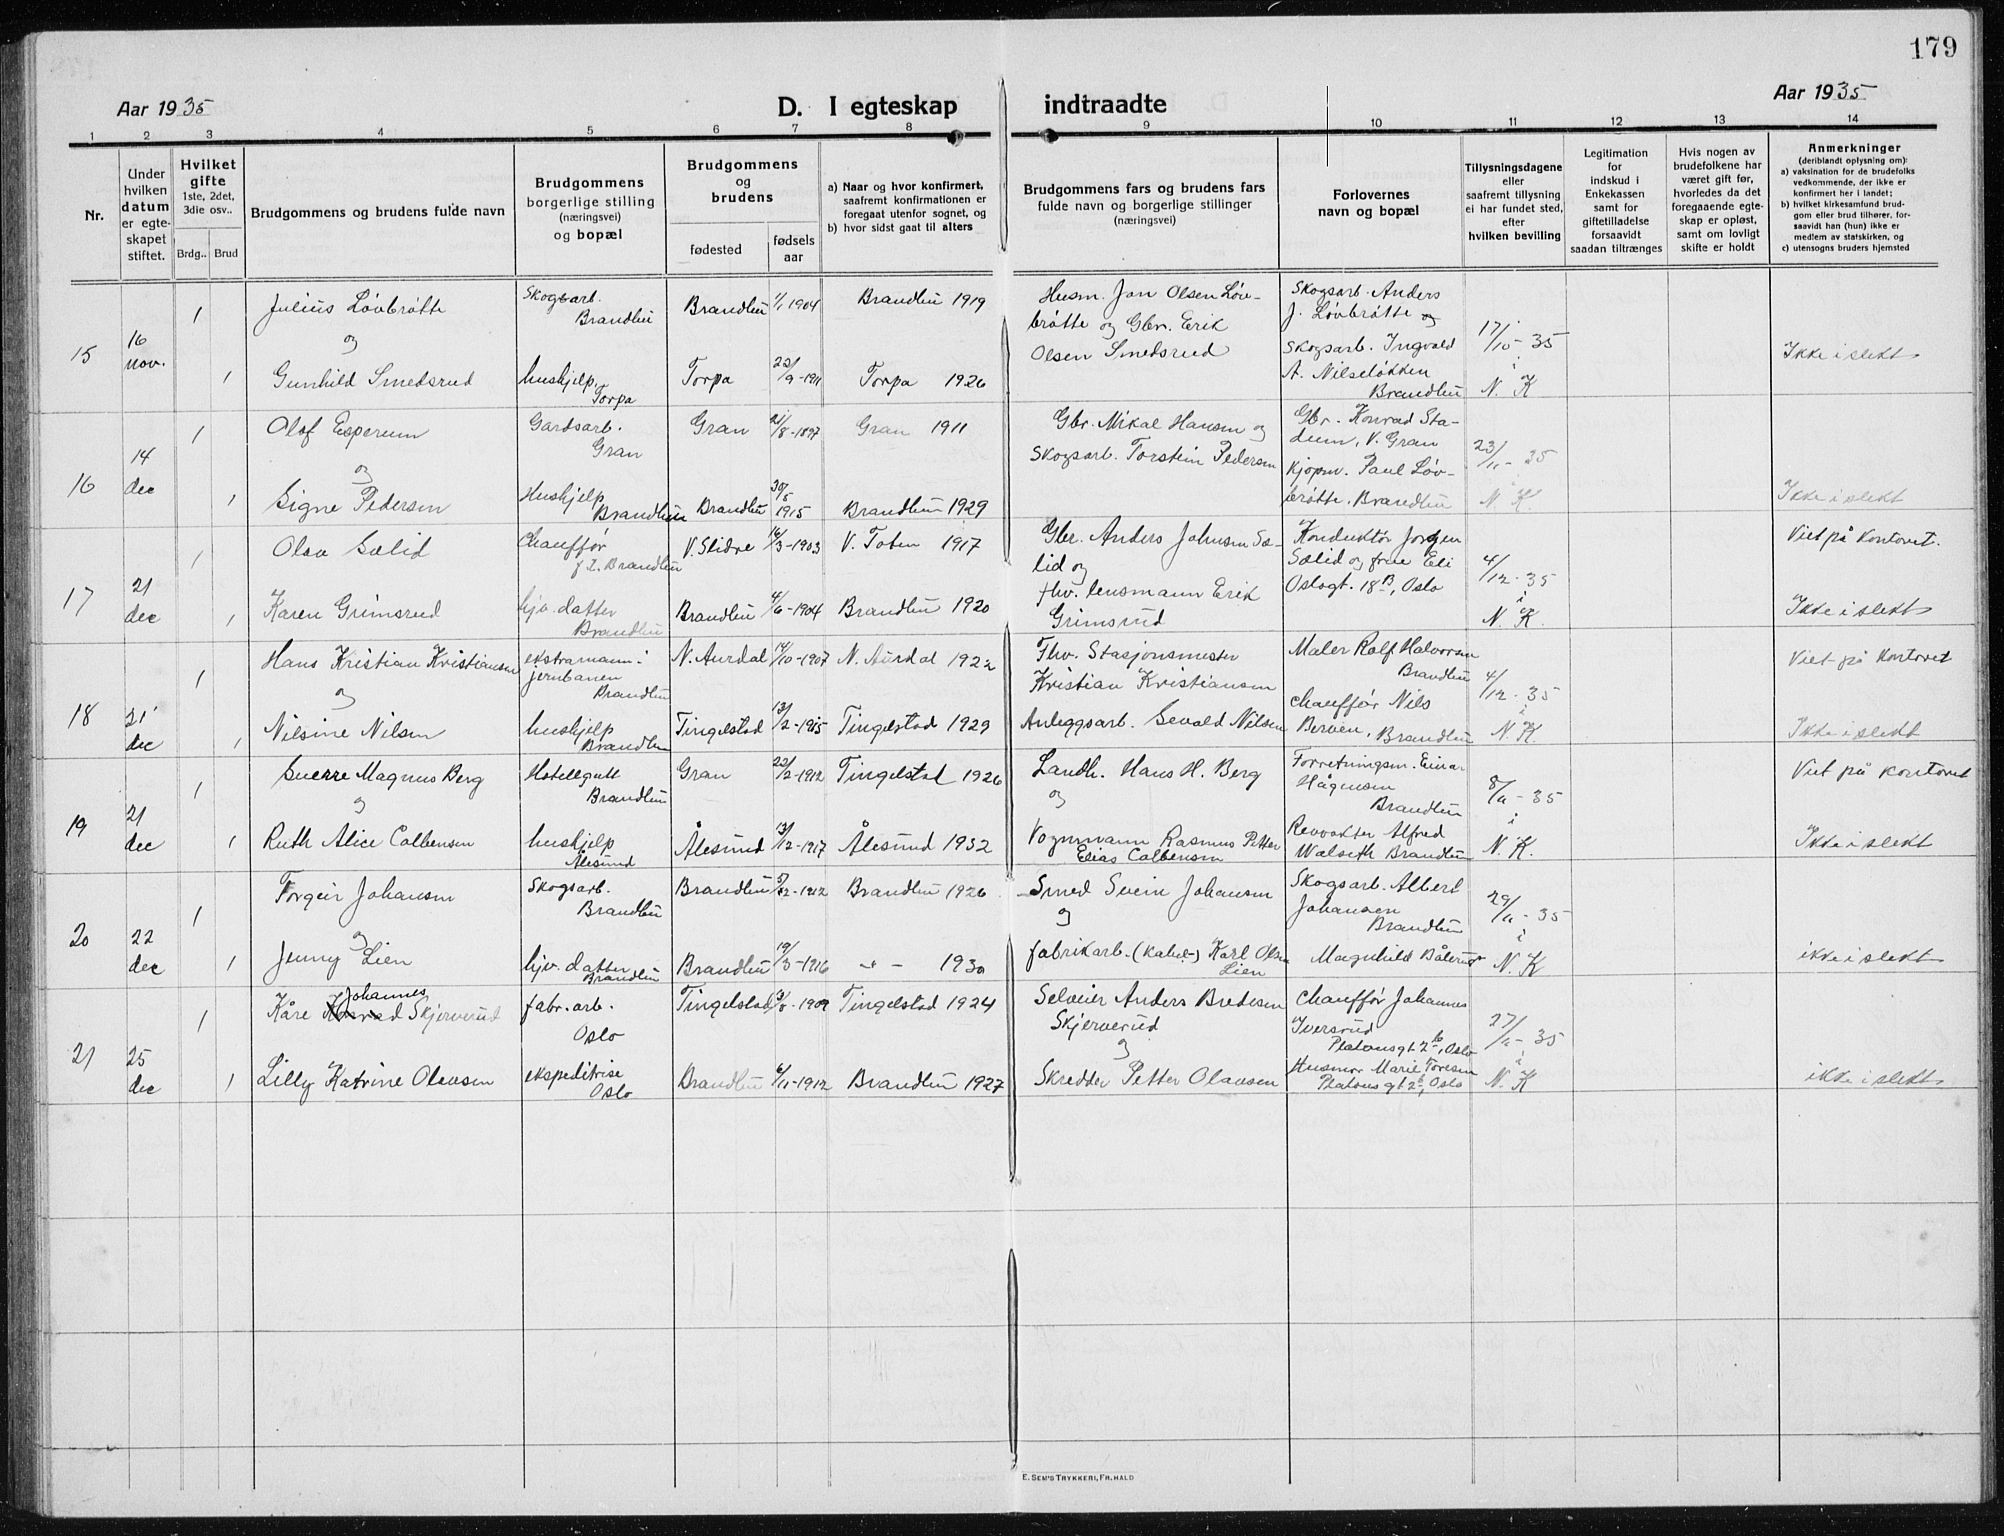 179
Aar 1935
D. I egteskap indtraadte
Aar 1935
1 2 3 4 5 6 7 8 9 10 11 12 13 14
Nr.
Under hvilken datum er egteskapet stiftet.
Hvilket gifte
1ste, 2det, 3die osv..
Brdg.. Brud
Brudgommens og brudens fulde navn
Brudgommens borgerlige stilling (næringsvei) og bopæl
Brudgommens og brudens
fødested
fødsels aar
a) Naar og hvor konfirmert, saafremt konfirmationen er foregaat utenfor sognet, og
b) hvor sidst gaat til alters
Brudgommens fars og brudens fars fulde navn og borgerlige stillinger (næringsvei)
Forlovernes navn og bopæl
Tillysningsdagene eller saafremt tillysning ei har fundet sted, efter hvilken bevilling
Legitimation for indskud i Enkekassen samt for giftetilladelse forsaavidt saadan tiltrænges
Hvis nogen av brudefolkene har været gift før, hvorledes da det foregaaende egteskap er opløst, samt om lovligt skifte er holdt
Anmerkninger
(deriblandt oplysning om):
a) vaksination for de brudefolks vedkommende, der ikke er konfirmert her i landet;
b) hvilket kirkesamfund brudgom eller brud tilhører, forsaavidt han (hun) ikke er medlem av statskirken, og
c) utensogns bruders hjemsted
15
16 nov.
1
Julius Løvbrøtte
og
1
Gunhild Smedsrud
Skogsarb. Brandbu
hushjelp. Torpa
Brandbu 1/1 1904
Torpa 22/9-1911
Brandbu 1919
Torpa 1926
Husm. Jon Olsen Løv-
brøtte og Gbr. Erik
Olsen Smedsrud
Skogsarb. Anders
J. Løvbrøtte og
Skogsarb. Ingvald
A. Nilseløkken
Brandbu
17/10-35
i
N. K
Ikke i slekt
16
14 dec
1
Olaf Esperum
og
1
Signe Pedersen
Gårdsarb. Gran
Hushjelp Brandbu
Gran 21/8-1897
Brandbu 30/5 1915
Gran 1911
Brandbu 1929
Gbr. Mikal Hansen og
Skogsarb. Torstein Pedersen
Gbr. Konrad Sta-
dum, V. Gran
Kjøpm. Paul Løv-
brøtte. Brandbu
23/11-35
i
N. K.
Ikke i slekt
17
21 dec
1
Olav Sælid
1
Karen Grimsrud
Chauffør
f. t. Brandbu
hjv. datter Brandbu
V. Slidre 16/3-1903
Brandbu 4/6-1904
V. Toten 1917
Brandbu 1920
Gbr. Anders Johnsen Sæ-
lid og
fhv. lensmann Erik
Grimsrud
Konduktør Jørgen
Sælid og frue Eli
Oslogt. 18B, Oslo
4/12-35
i
N. K.
Viet på kontoret.
Ikke i slekt
18
21 dec
1
Hans Kristian Kristiansen
og
1
Nilsine Nilsen
ekstramann i
jernbanen
Brandbu
hushjelp Brandbu
N. Aurdal 14/10-1907
Tingelstad 13/2-1915
N. Aurdal 1922
Tingelstad 1929
Fhv. Stasjonsmester
Kristian Kristiansen
Anleggsarb. Sevald Nilsen
Maler Rolf Halvorsen
Brandbu
chauffør Nils
Berven, Brandbu
4/12-35
i
N. K.
Viet på kontoret
Ikke i slekt
19
21 dec
1
Sverre Magnus Berg
og
1
Ruth Alice Calbensen
Hotellgutt Brandbu
hushjelp Ålesund
Gran 22/2-1912
Ålesund 13/12-1917
Tingelstad 1926
Ålesund 1932
Landh. Hans H. Berg
og
Vognmann Rasmus Petter
Elias Calbensen
Forretningsm. Einar
Hågensen
Brandbu
Alfred
Walseth Brandbu
8/11-35
i
N. K.
Viet på kontoret
Ikke i slekt
20
22 dec
1
Torgeir Johansen
og
1
Jenny Lien
Skogsarb. Brandbu
hjv. datter Brandbu
Brandbu 5/12-1912
Brandbu 19/3-1916
Brandbu 1926
-"- 1930
Smed Svein Johansen
og
fabrikarb. (kabel-) Karl Olsen
Lien
Skogsarb. Albert
Johansen
Brandbu
Magnhild Bålerud
29/11-35
i
N. K
ikke i slekt
21
25 dec
1
Johannes
Kåre Konrad Skjerverud
1
Lilly Katrine Olavsen
fabr. arb. Oslo
ekspeditrise Oslo
Tingelstad 3/8-1909
Brandbu 6/11-1912
Tingelstad 1924
Brandbu 1927
Selveier Anders Bredesen
Skjerverud
og
Skredder Petter Olavsen
Chauffør Johannes
Iversrud
Platousgt. 2b, Oslo
Husmor Marie Toresen
Platousgt 2b, Oslo
27/11-35
i
N. K
ikke i slekt
E. SEM'S TRYKKERI, FR.HALD